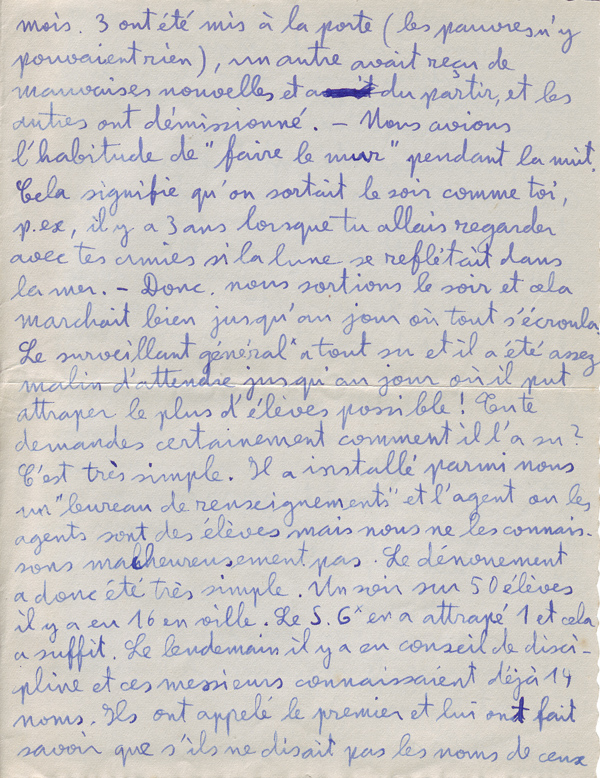 mois. 3 ont été mis à la porte (les pauvres n'y
pouvaient rien), un autre avait reçu de
mauvaises nouvelles et a du partir, et les
autres ont démissionné. – Nous avions
l'habitude de "faire le mur" pendant la nuit.
Cela signifie qu'on sortait le soir comme toi,
p.ex, il y a 3 ans lorsque tu allais regarder
avec tes amies si la lune se reflétait dans
la mer. – Donc. nous sortions le soir et cela
marchait bien jusqu'au jour où tout s'écroula.
Le surveillant général x a tout su et il a été assez
malin d'attendre jusqu'au jour où il put
attraper le plus d'élèves possible! Tu te
demandes certainement comment il l'a su?
C'est très simple. Il a installé parmi nous
un "bureau de renseignements" et l'agent ou les
agents sont des élèves mais nous ne les connais-
sons malheureusement pas. Le dénouement
a donc été très simple. Un soir sur 50 élèves
il y a eu 16 en ville. Le S. G x en a attrapé 1 et cela
a suffit. Le lendemain il y a eu conseil de disci-
pline et ces messieurs connaissaient déjà 14
noms. Ils ont appelé le premier et lui ont fait
savoir que s'ils ne disait pas les noms de ceux